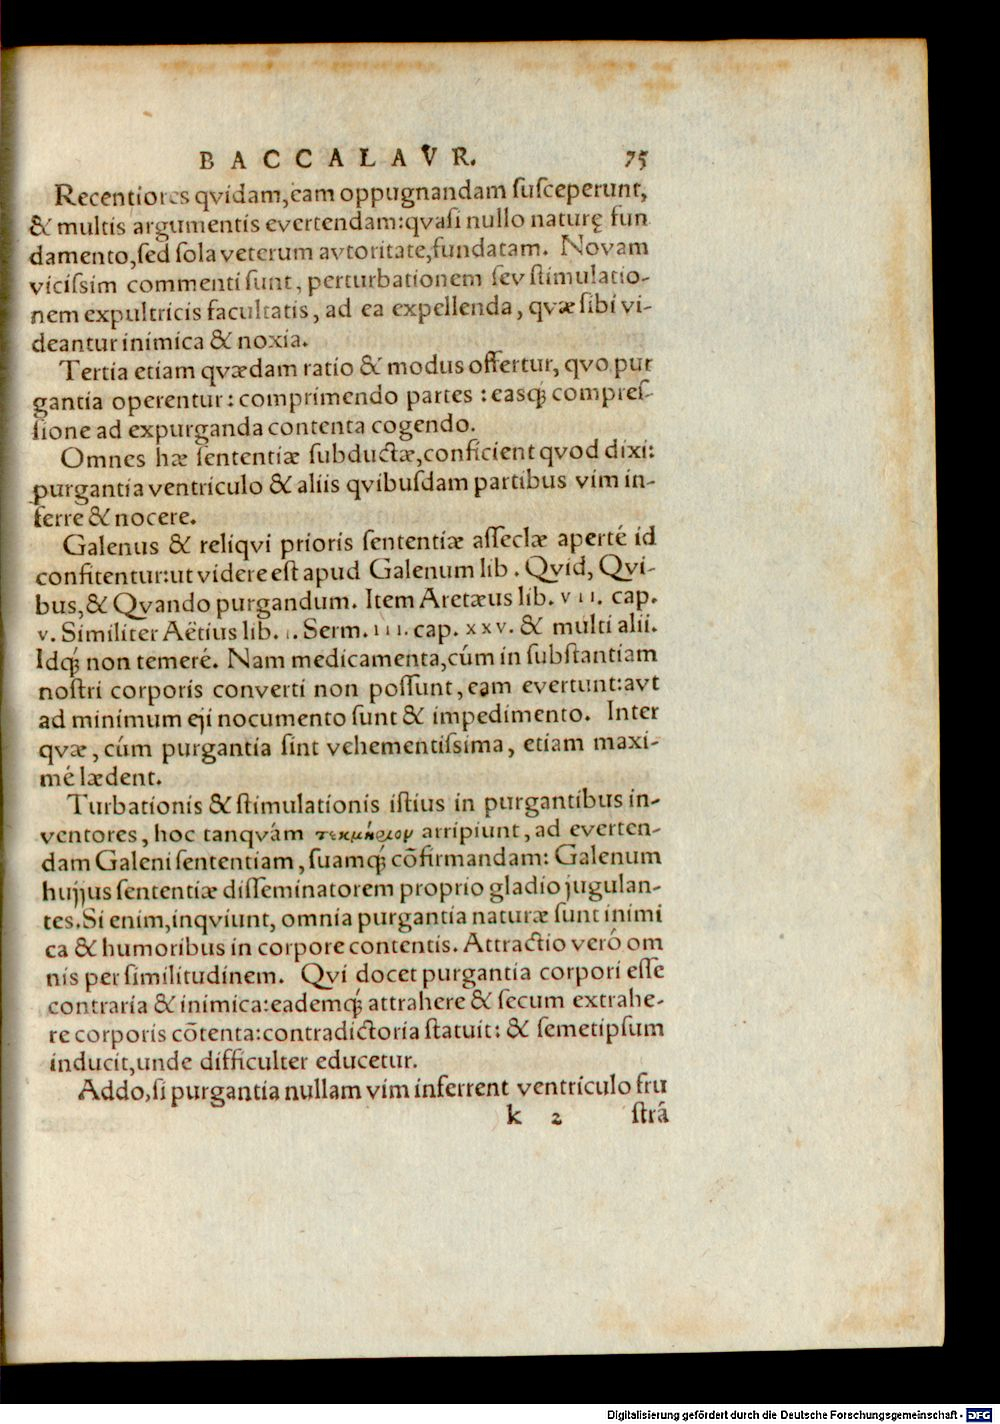 BACCALAVR. 75
Recentiores qvidam,eam oppugnandam ſuſceperunt,
& multis argumentis evertendam:qvaſi nullo naturę fun
damento,ſed ſola veterum avtoritate,fundatam. Novam
viciſsim commenti ſunt, perturbationem ſev ſtimulatio-
nem expultricis facultatis, ad ea expellenda, qvæ ſibi vi-
deantur inimica & noxia.
Tertia etiam qvædam ratio & modus offertur, qvo pur
gantia operentur: comprimendo partes : easq́; compreſ-
ſione ad expurganda contenta cogendo.
Omnes hæ ſententiæ ſubductæ,conficient qvod dixi:
purgantia ventriculo & aliis qvibuſdam partibus vim in-
ferre & nocere.
Galenus & reliqvi prioris ſententiæ aſſeclæ aperté id
confitentur:ut videre eſt apud Galenum lib. Qvid, Qvi-
bus,& Qvando purgandum. Item Aretæus lib. VII. cap.
V. Similiter Aëtius lib. I. Serm. III. cap. XXV. & multi alii.
Idq́; non temeré. Nam medicamenta,cúm in ſubſtantiam
noſtri corporis converti non poſſunt, eam evertunt:avt
ad minimum eji nocumento ſunt & impedimento. Inter
qvæ, cúm purgantia ſint vehementiſsima, etiam maxi-
mé lædent.
Turbationis & ſtimulationis iſtius in purgantibus in-
ventores, hoc tanqvám τεκμήριον arripiunt, ad everten-
dam Galeni ſententiam, ſuamq́; cõfirmandam: Galenum
hujjus ſententiæ diſſeminatorem proprio gladio jugulan-
tes.Si enim,inqviunt, omnia purgantia naturæ ſunt inimi
ca & humoribus in corpore contentis. Attractio veró om
nis per ſimilitudinem. Qvi docet purgantia corpori eſſe
contraria & inimica:eademq́; attrahere & ſecum extrahe-
re corporis cõtenta:contradictoria ſtatuit: & ſemetipſum
inducit,unde difficulter educetur.
Addo,ſi purgantia nullam vim inferrent ventriculo fru
k 2 ſtrā
Digitalisierung gefördert durch die Deutsche Forschungsgemeinschaft - DFG